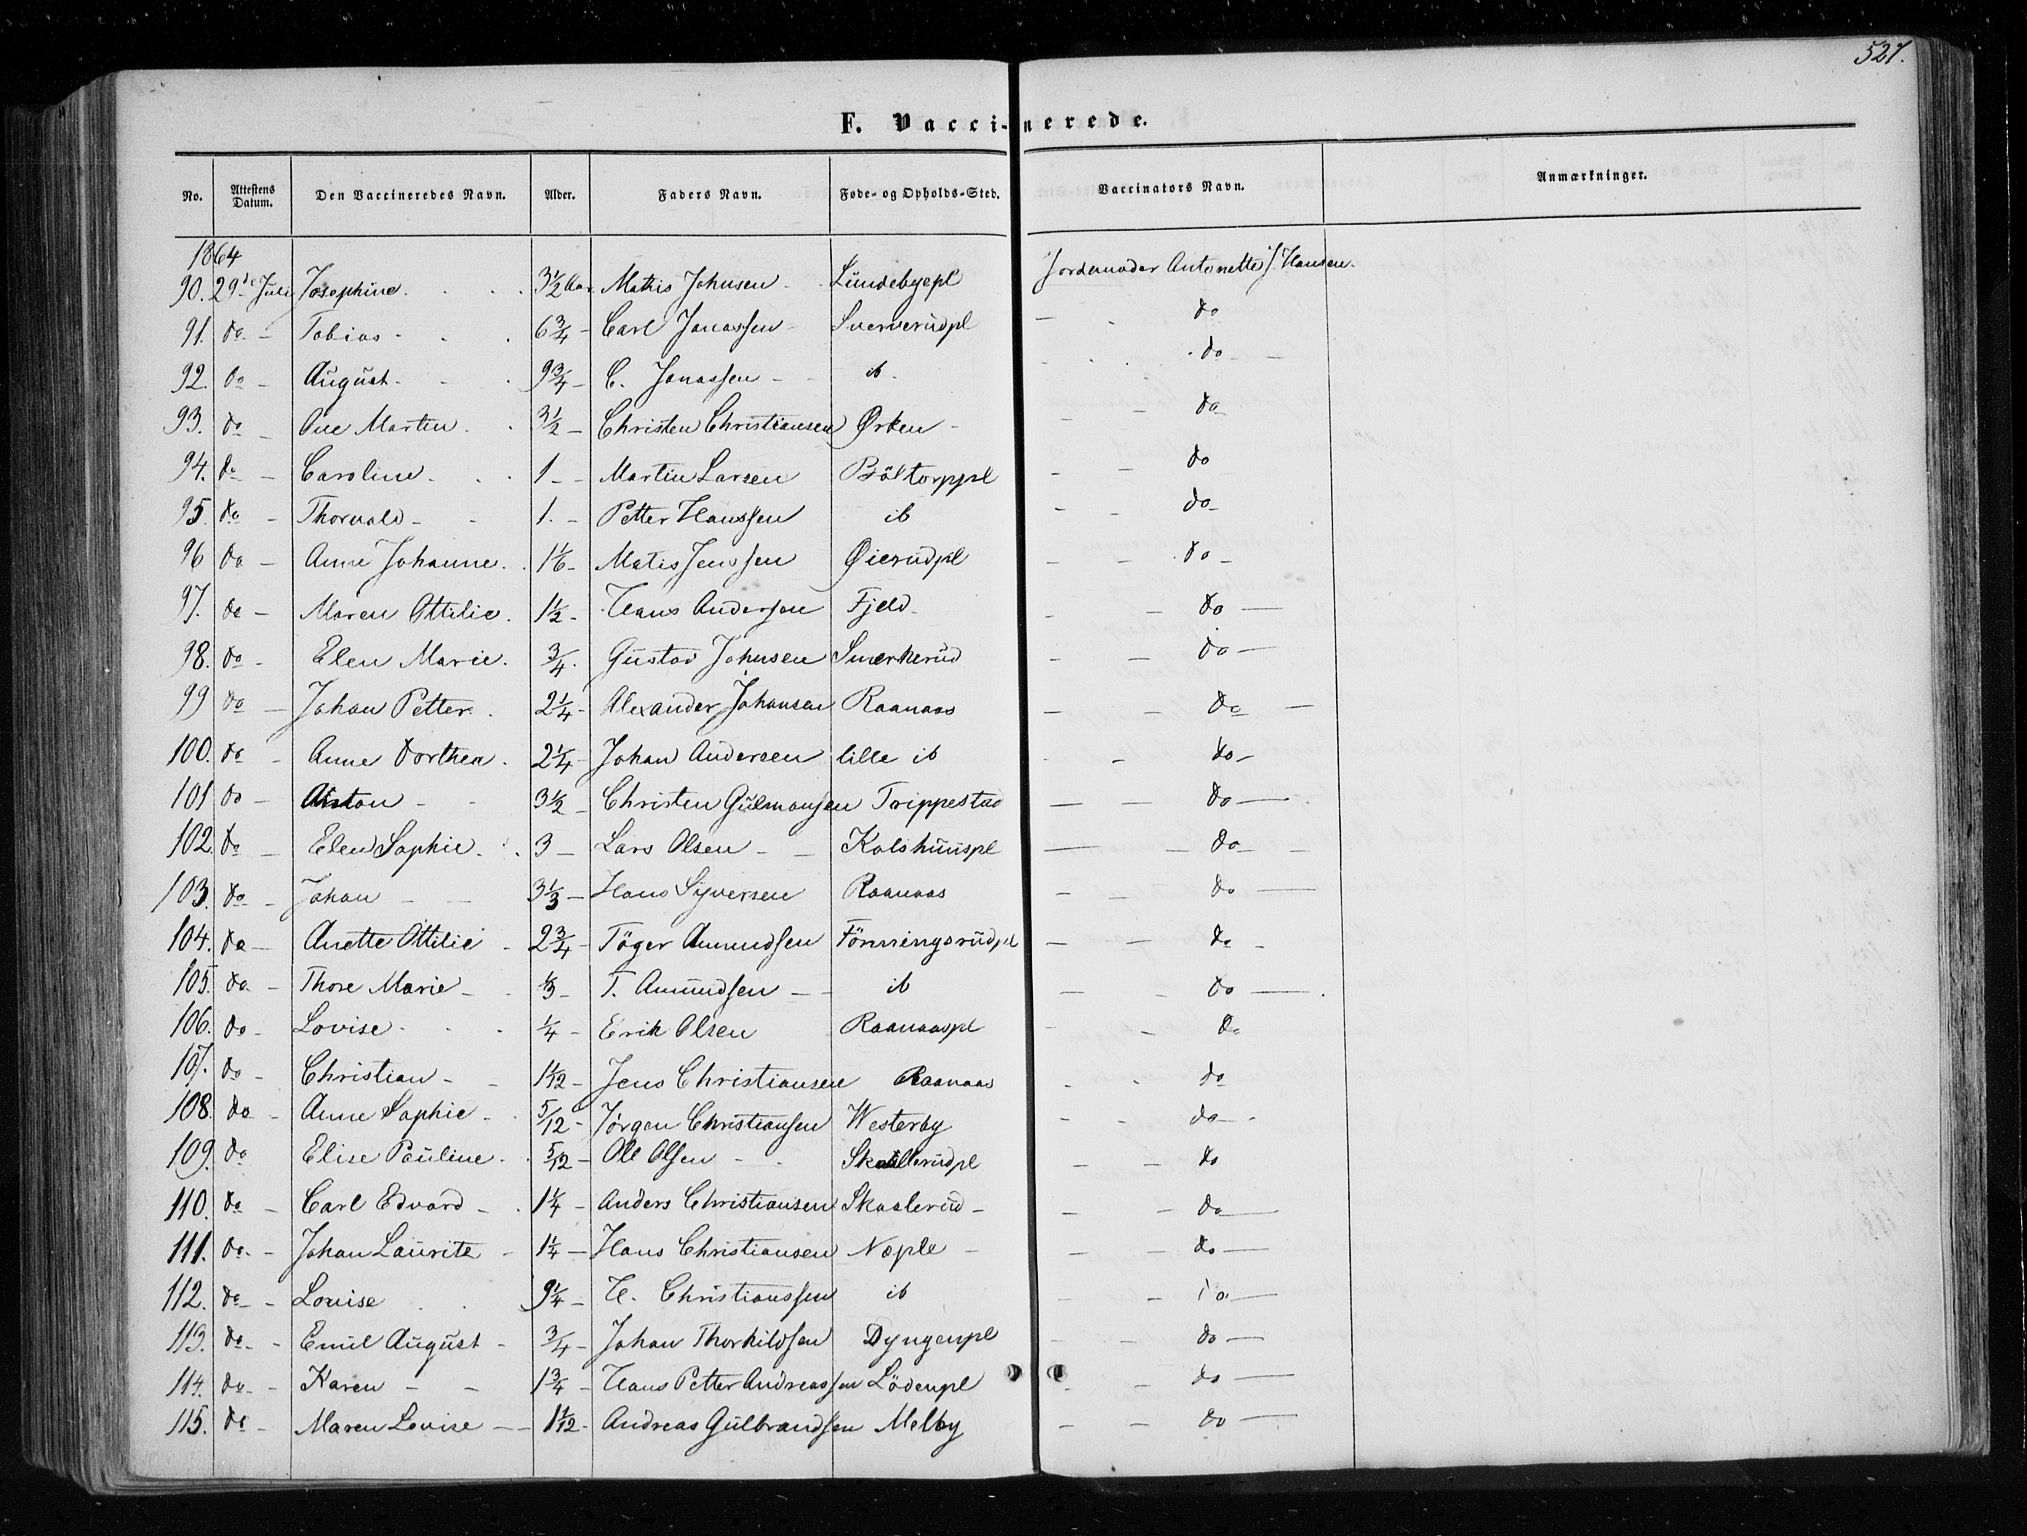 527.
F. Vaccinerede.
No. Attestens Datum. Den Vaccineredes Navn. Alder. Faders Navn. Føde- og Opholds-Sted. Vaccinators Navn. Anmærkninger.
1864
90. 29de Juli Josephine. 3 1/2 Aar Mathis Johnsen Lundebyepl Jordemoder Antonette J. Hansen.
91. do Tobias 6 3/4 Carl Jonassen Sververudpl do
92. do August. 9 3/4 C. Jonassen ib do
93. do Ane Martin 3 1/2 Christen Christiansen Ørken do
94. do Caroline 1 Martin Larsen Böltorppl do
95. do Thorvald 1. Petter Hanssen ib do
96 do Anne Johanne 1 1/6 Matis Jenssen Øierudpl do
97. do Maren Ottilie 1 1/2 Hans Andersen Fjeld do
98. do Elen Marie. 3/4 Gustav Johnsen Smerkerud do
99 do Johan Petter 2 1/4 Alexander Johansen Raanaas do
100. do Anne Dorthea 2 1/4 Johan Andersen lille ib do
101 do Anton 3 1/2 Christen Gulmonsen Trippestad do
102. do Elen Sophie. 3 Lars Olsen Kolshuuspl do
103. do Johan 3 1/3 Hans Syversen Raanaas do
104. do Anette Ottilie 2 3/4 Töger Amundsen Fönningsrudpl do
105. do Thore Marie 1/3 T. Amundsen ib do
106. do Lovise 1/4 Erik Olsen Raanaaspl do
107. do Christian 1 1/12 Jens Christiansen Raanaas do
108. do Anne Sophie 5/12 Jörgen Christiansen Westerby do
109. do Elise Pauline 5/12 Ole Olsen Skallerudpl do
110. do Carl Edvard 1 1/4 Anders Christiansen Skaalerud do
111. do Johan Lauritz 1 1/4 Hans Christiansen Næple do
112. do Louise 9 1/4 H. Christianssen ib do
113. do Emil August 3/4 Johan Thorkildsen Dyngenpl do
114. do Karen 1 3/4 Hans Petter Andreassen Lödenpl do
115. do Maren Lovise 1 1/12 Andreas Gulbrandsen Melby do